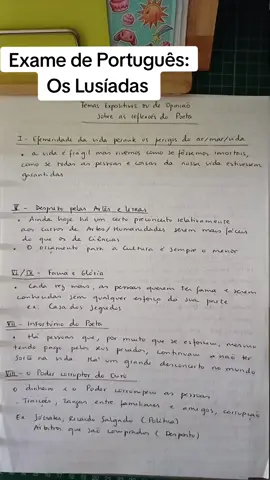 Exame de Português:
Os Lusíadas
Temas Expositivos ou de Opinião
sobre as reflexões do Poeta
I - Efemeridade da vida perante os perigos do ar/mar/vida
• a vida é frágil mas vivemos como se fôssemos imortais,
como se todas as pessoas e coisas da nossa vida estivessem
garantidas
V - Desprezo pelas Artes e Letras
• Ainda hoje há um certo preconceito relativamente
aos cursos de Artes/Humanidades serem mais fáceis
do que os de Ciências
• O orçamento para a Cultura é sempre o menor
VI/IX - Fama e Glória
• Cada vez mais, as pessoas querem ter fama e serem
conhecidas sem qualquer esforço da sua parte
ex: Casa dos Segredos
VII - Infortúnio do Poeta
• Há pessoas que, por muito que se esforcem, mesmo
tendo pago pelos seus pecados, continuam a não ter
sorte na vida. Há um grande desconcerto no mundo
VIII - O Poder corruptor do Ouro
O dinheiro e o Poder corrompem as pessoas
. Traições, zangas entre familiares e amigos, corrupção
Ex: Sócrates, Ricardo Salgado (Política)
Árbitros que são comprados (Desporto)